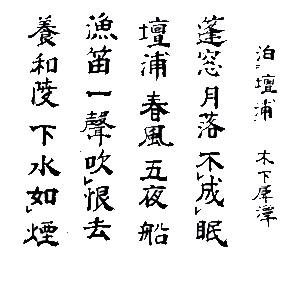 泊二壇浦一 木下犀潭
蓬窓月落不レ成レ眠
壇浦春風五夜船
漁笛一聲吹レ恨去
養和陵下水如レ煙